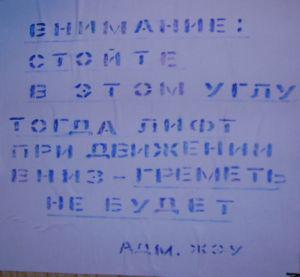 ВНИМАНИЕ:
СТОЙТЕ
В ЭТОМ УГЛУ
ТОГДА ЛИФТ
ПРИ ДВИЖЕНИИ
ВНИЗ - ГРЕМЕТЬ
НЕ БУДЕТ
АДМ. ЖЭУ